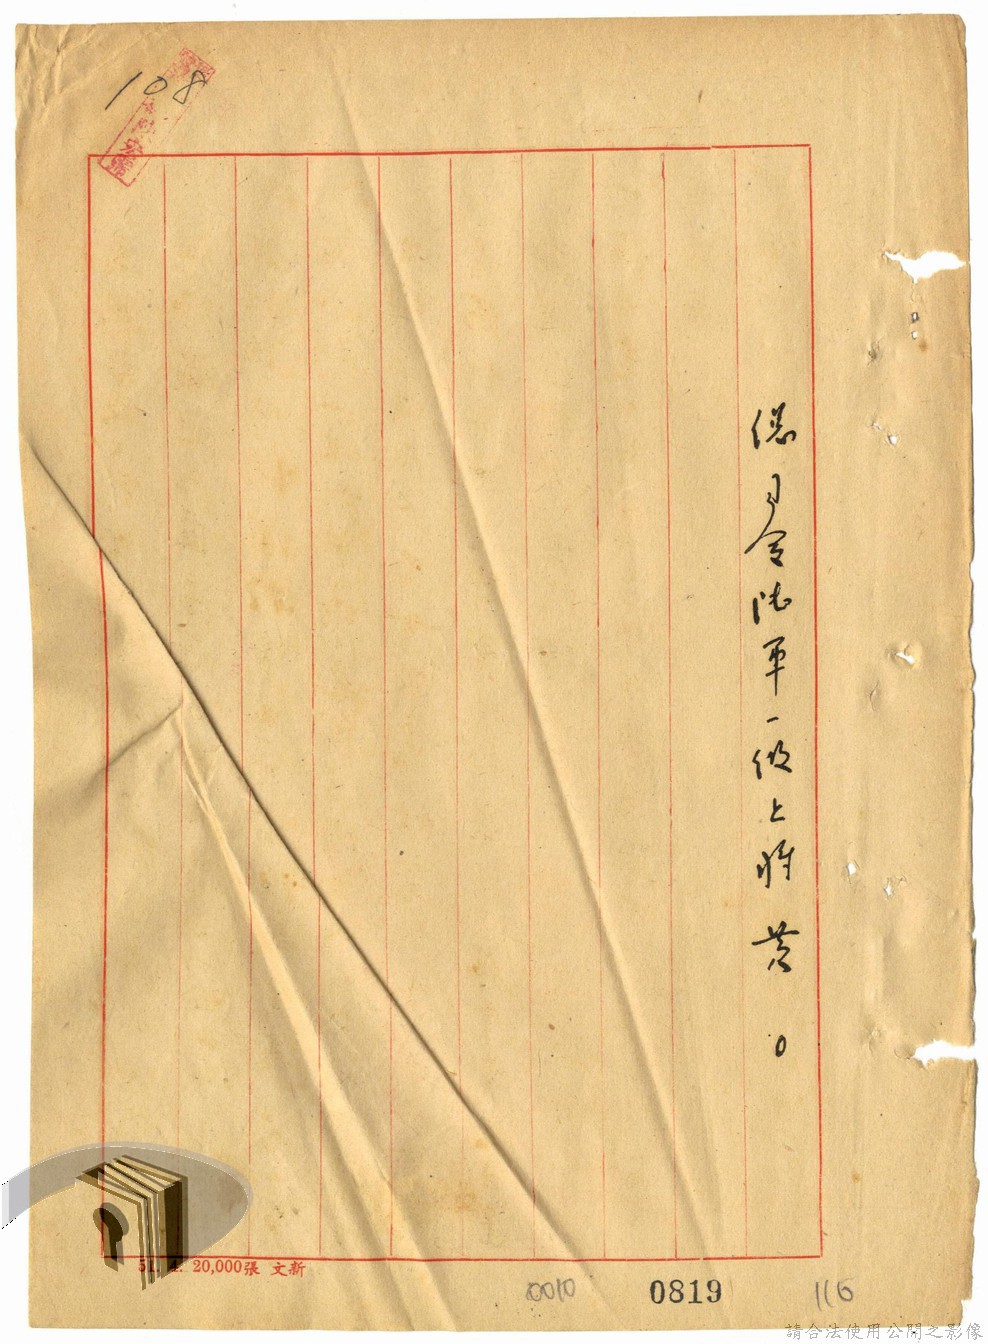 108
總司令陸軍一級上將黃〇
51. 4. 20,000張 文新
0010
0819
116
請合法使用公開之影像